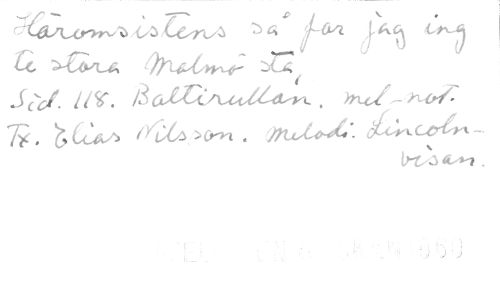 Häromsistens så for jag ing
te stora Malmö sta,
Sid. 118. Baltirullan. mel-not.
Tx. Elias Nilsson. melodi: Lincoln-
visan.